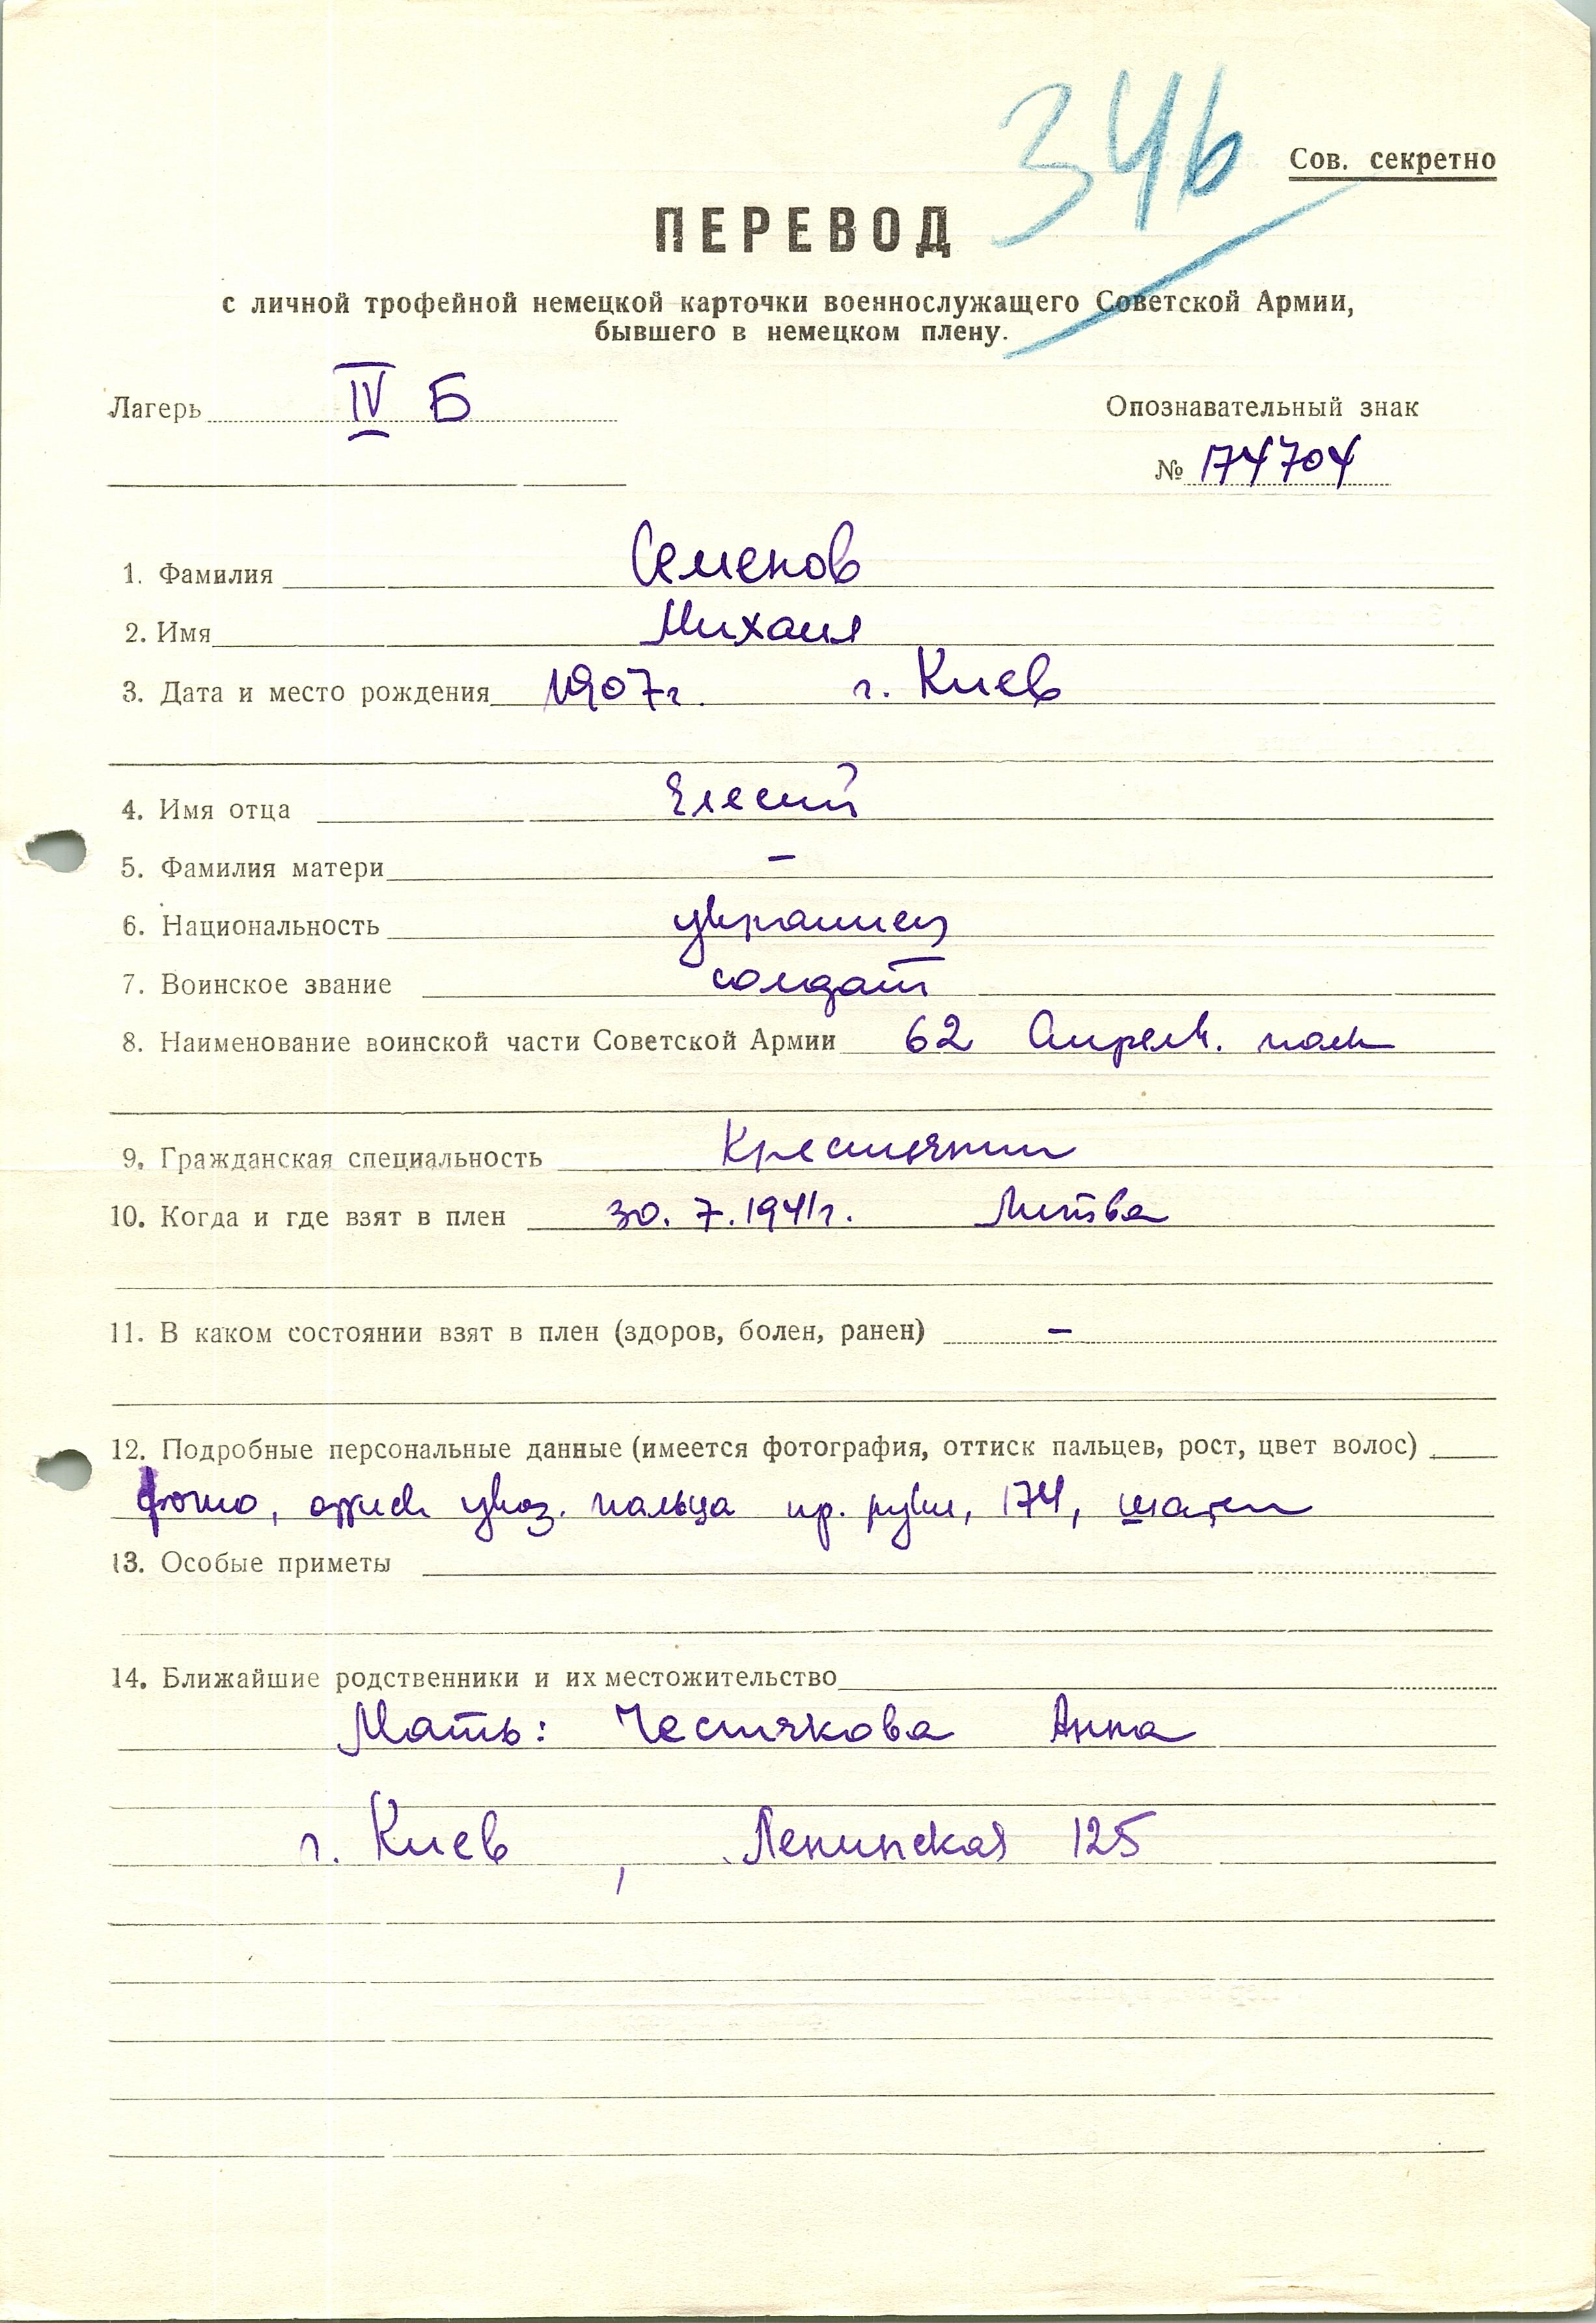 346
Сов. секретно
ПЕРЕВОД
с личной трофейной немецкой карточки военнослужащего Советской Армии,
бывшего в немецком плену.
Лагерь IV Б
Опознавательный знак
№ 174704
1. Фамилия Семенов
2. Имя Михаил
3. Дата и место рождения 1907г. г. Киев
4. Имя отца Елесий
5. Фамилия матери –
6. Национальность украинец
7. Воинское звание солдат
8. Наименование воинской части Советской Армии 62 стрелк. полк
9. Гражданская специальность Крестьянин
10. Когда и где взят в плен 30. 7. 1941г. Литва
11. В каком состоянии взят в плен (здоров, болен, ранен) –
12. Подробные персональные данные (имеется фотография, оттиск пальцев, рост, цвет волос)
фото, оттиск указ. пальца пр. руки, 174, шатен
13. Особые приметы
14. Ближайшие родственники и их местожительство
Мать: Честякова Анна
г. Киев, Ленинская 125